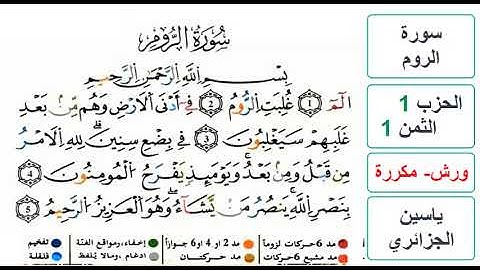 سُورَةُ الرُّومِ
بِسْمِ اللَّهِ الرَّحْمَٰنِ الرَّحِيمِ
أَلَٓمِّٓ 1 غُلِبَتِ الرُّومُ 2 فِي أَدْنَى الْأَرْضِ وَهُم مِّنۢ بَعْدِ
غَلَبِهِمْ سَيَغْلِبُونَ 3 فِي بِضْعِ سِنِينَ لِلَّهِ الْأَمْرُ
مِن قَبْلُ وَمِنۢ بَعْدُ وَيَوْمَئِذٍ يَفْرَحُ الْمُومِنُونَ 4
بِنَصْرِ اللَّهِ يَنصُرُ مَنْ يَّشَآءُ وَهُوَ الْعَزِيزُ الرَّحِيمُ 5
مد 6 حركات لزوماً
مد 2 او 4 او 6 جوازاً
إخفاء، ومواقع الغنّة
تفخيم
مد مشبع 6 حركات
مد حركتان
ادغام، ومالا يُلفظ
قلقلة
سورة
الروم
الحزب 1
الثمن 1
ورش- مكررة
ياسين
الجزائري